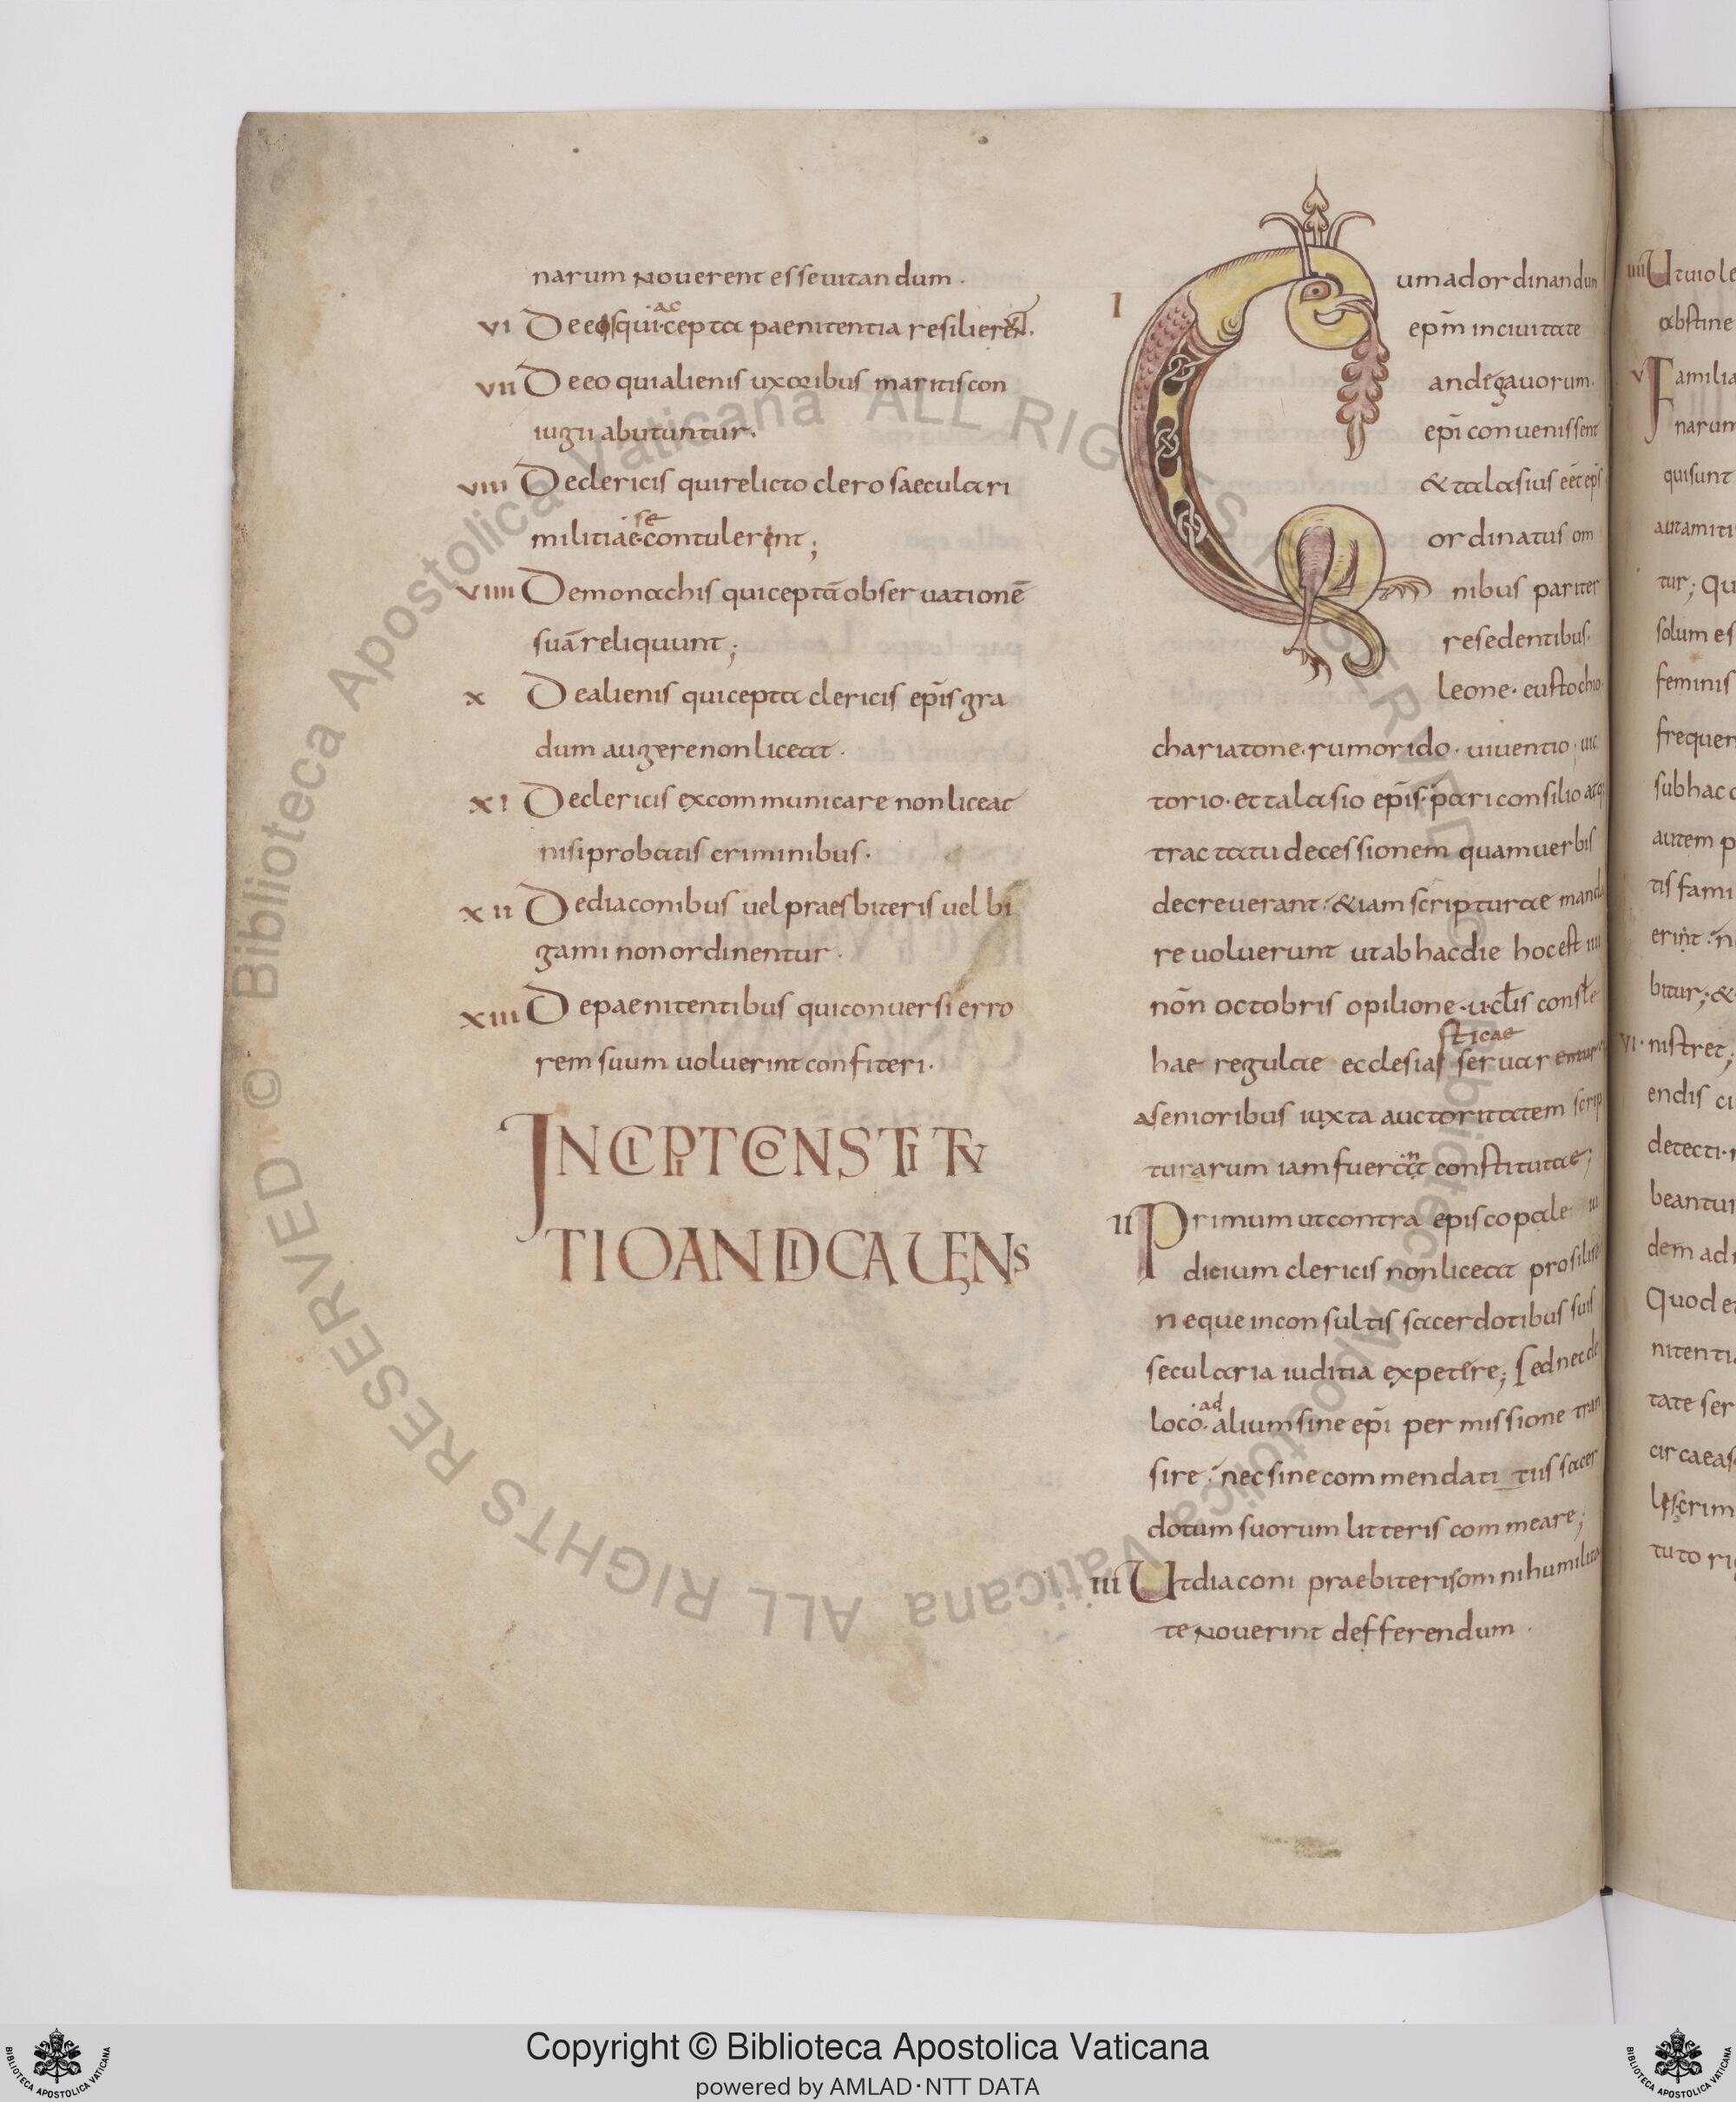 narum noverent esse vitandum.
VI De eos qui ·ac·cepta paenitentia resilierent.
VII De eo qui alienis uxoribus maritis con
iugii abutuntur.
VIII De clericis qui relicto clero saeculari
militiae ·se· contulerint;
VIIII De monachis qui ceptā observationē
suā reliquunt;
X De alienis qui cepta clericis ep̄is gra
dum augere non liceat.
XI De clericis excommunicare non liceat
nisi probatis criminibus.
XII De diaconibus vel praesbiteris vel bi
gami non ordinentur.
XIII De paenitentibus qui conversi erro
rem suum voluerint confiteri.
INCIPIT CONSTITV
TIO ANDICAUENS
I Cum ad ordinandum
ep̄m in civitate
andigavorum.
ep̄i convenissent
& talasius eēt ep̄s
ordinatus om
nibus pariter
resedentibus.
leone. eustochio
chariatone. rumorido. viventio. vic
torio. et talasio ep̄is. pari consilio atq
tractatu decessionem quam verbis
decreverant. &iam scripturae manda
re voluerunt ut ab hac die hoc est iiii
nōn octobris opilione. v. cl̄is consl̄e
hae regulae ecclesiasticae servarentur
a senioribus iuxta auctoritatem scrip
turarum iam fuerant constitutae;
II Primum ut contra episcopale iu
dicium clericis non liceat prosilire
neque inconsultis sacerdotibus suis
secularia iuditia expetere; sed nec de
loco ·ad· alium sine ep̄i permissione tran
sire. nec sine commendati tiis sacer
dotum suorum litteris commeare;
III Ut diaconi praebiteris omni humilita
te noverint defferendum.
IIII Ut viole
abstine
V Familia
narum
qui sunt
aut amiti
tur; Qu
solum es
feminis
frequen
sub hac c
autem p
tis fami
erint. n
bitur; &
VI. nistret;
endis cu
detecti. n
beantur
dem ad
Quod et
nitentia
tate ser
circa eas
les crim
tuto ri
© Biblioteca Apostolica Vaticana ALL RIGHTS RESERVED
© Biblioteca Apostolica Vaticana ALL RIGHTS RESERVED
Copyright © Biblioteca Apostolica Vaticana
powered by AMLAD·NTT DATA
BIBLIOTECA APOSTOLICA VATICANA
BIBLIOTECA APOSTOLICA VATICANA